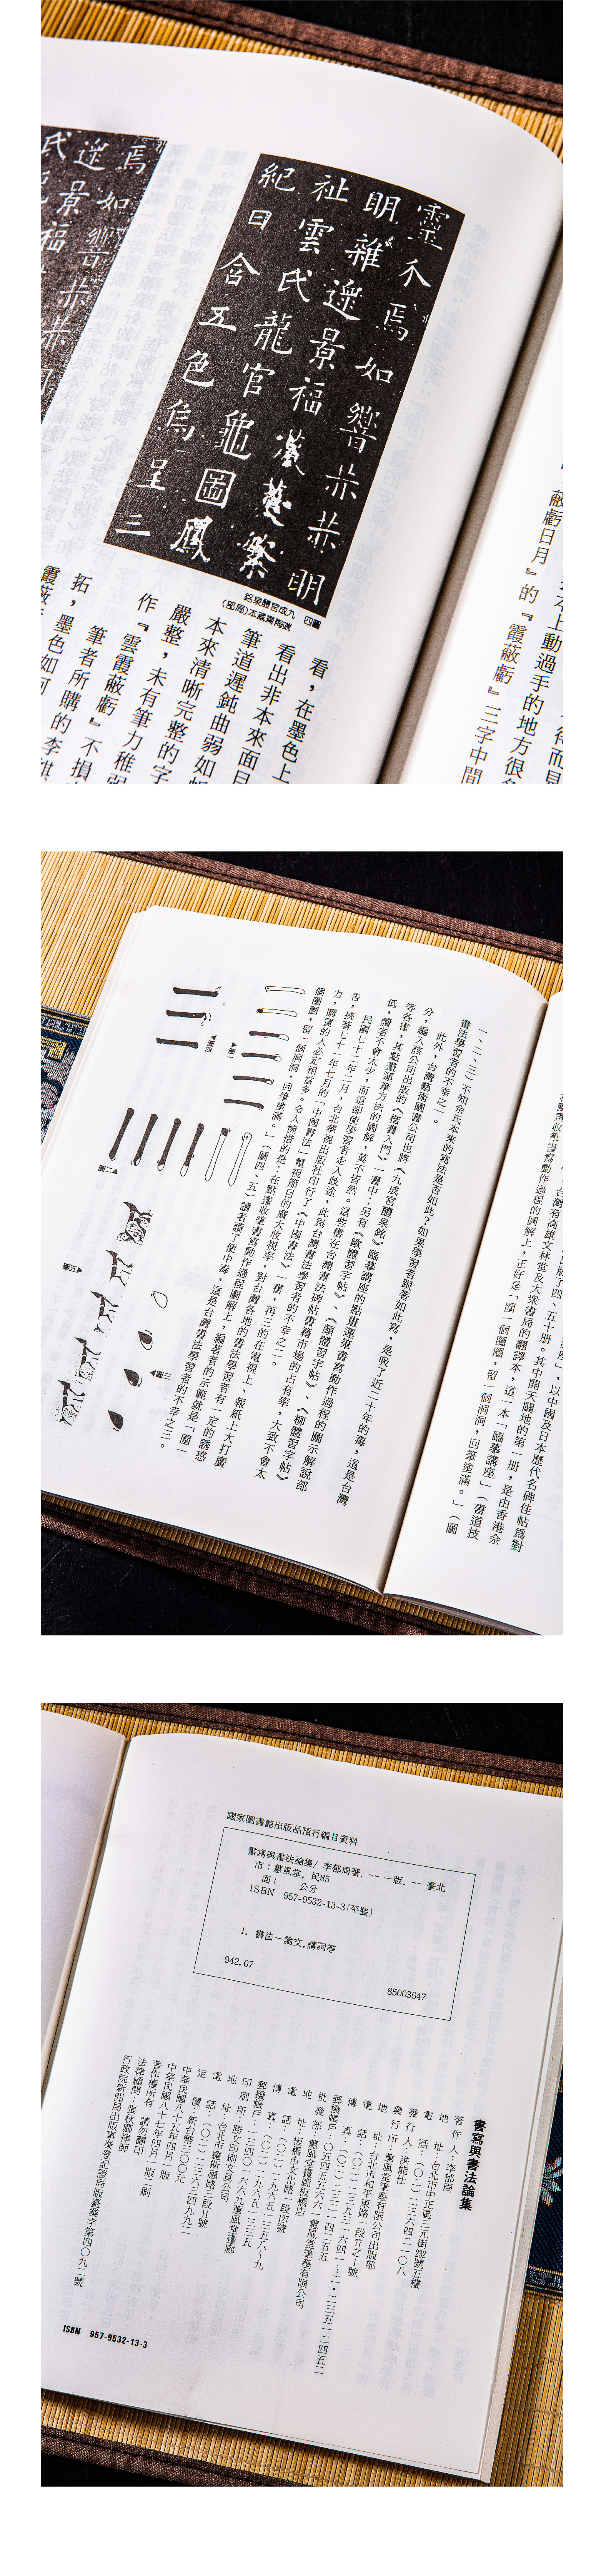 靈不焉如響赤赤明
明雜遝景福
祉雲氏龍官龜圖鳳
紀日含五色烏呈三
圖四 九成宮醴泉銘
看，在墨色上
看出非本來面目
筆道遲鈍曲弱如
本來清晰完整的字
嚴整，未有筆力稚弱
作『雲霞蔽虧』不損
拓，墨色如何
筆者所購的李祺
蔽虧日月』的『霞蔽虧』三字中間
本上動過手的地方很
一、二、三）不知佘氏本來的寫法是否如此？如果學習者跟著如此寫，是吸了近二十年的毒，這是台灣
書法學習者的不幸之一。
此外，台灣藝術圖書公司也將《九成宮醴泉銘》臨摹講座的點畫運筆書寫動作過程的圖示解說部
分，編入該公司出版的《楷書入門》一書中；另有《歐體習字帖》、《顏體習字帖》、《柳體習字帖》
等各書，其點畫運筆方法的圖解，莫不皆然。這些書在台灣書法碑帖書籍市場的占有率，大致不會太
低，讀者不會太少，而這卻使學習者走入歧途，此爲台灣書法學習者的不幸之二。
民國七十二年二月，台北華視出版社印行了《中國書法》一書，再三的在電視上、報紙上大打廣
告，挾著七十一年七月的「中國書法」電視節目的廣大收視率，對台灣各地的書法學習者有一定的誘惑
力，購買的人必定相當多。令人惋惜的是：在點畫收筆書寫動作過程圖解上，編著者的示範就是「圍一
個圈圈，留一個洞洞，回筆塗滿。」（圖四、五）讀者讀了便中毒，這是台灣書法學習者的不幸之三。
圖一
圖四
圖二
圖三
圖五
出版了四、五十册。其中開天闢地的第一册，是由香港佘
台灣有高雄文林堂及大衆書局的翻譯本，這一本「臨摹講座」（書道技
在點畫收筆書寫動作過程的圖解上，正好是「圍一個圈圈，留一個洞洞，回筆塗滿。」（圖
講座」，以中國及日本歷代名碑佳帖爲對
國家圖書館出版品預行編目資料
書寫與書法論集/ 李郁周著. -- 一版. -- 臺北
市：蕙風堂, 民85
面； 公分
ISBN 957-9532-13-3(平裝)
1. 書法－論文,講詞等
942.07
85003647
書寫與書法論集
著作人：李郁周
地 址：台北市中正區三元街232號五樓
電 話：（〇二）二三六四二一〇八
發行人：洪能仕
發行所：蕙風堂筆墨有限公司出版部
地 址：台北市和平東路一段77之一號
郵撥帳戶：〇五四五五九六一 蕙風堂筆墨有限公司
批發部：蕙風堂畫廊板橋店
地 址：板橋市文化路一段127號
印刷所：勝文印刷文具公司
地 址：台北市羅斯福路三段11號
電 話：（〇二）二三六三四九九二
定 價：新台幣三〇〇元
中華民國八十五年四月一版
中華民國八十七年四月一版二刷
著作權所有 請勿翻印
法律顧問：張秋卿律師
行政院新聞局出版事業登記證局版臺業字第四〇九二號
ISBN 957-9532-13-3